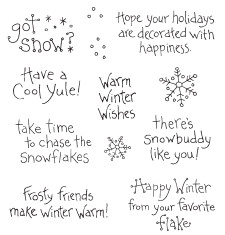 got
snow?
Hope your holidays
are decorated with
happiness.
Have a
Cool Yule!
Warm
Winter
Wishes
take time
to chase the
snowflakes
there's
snowbuddy
like you!
Frosty friends
make winter warm!
Happy Winter
from your favorite
flake